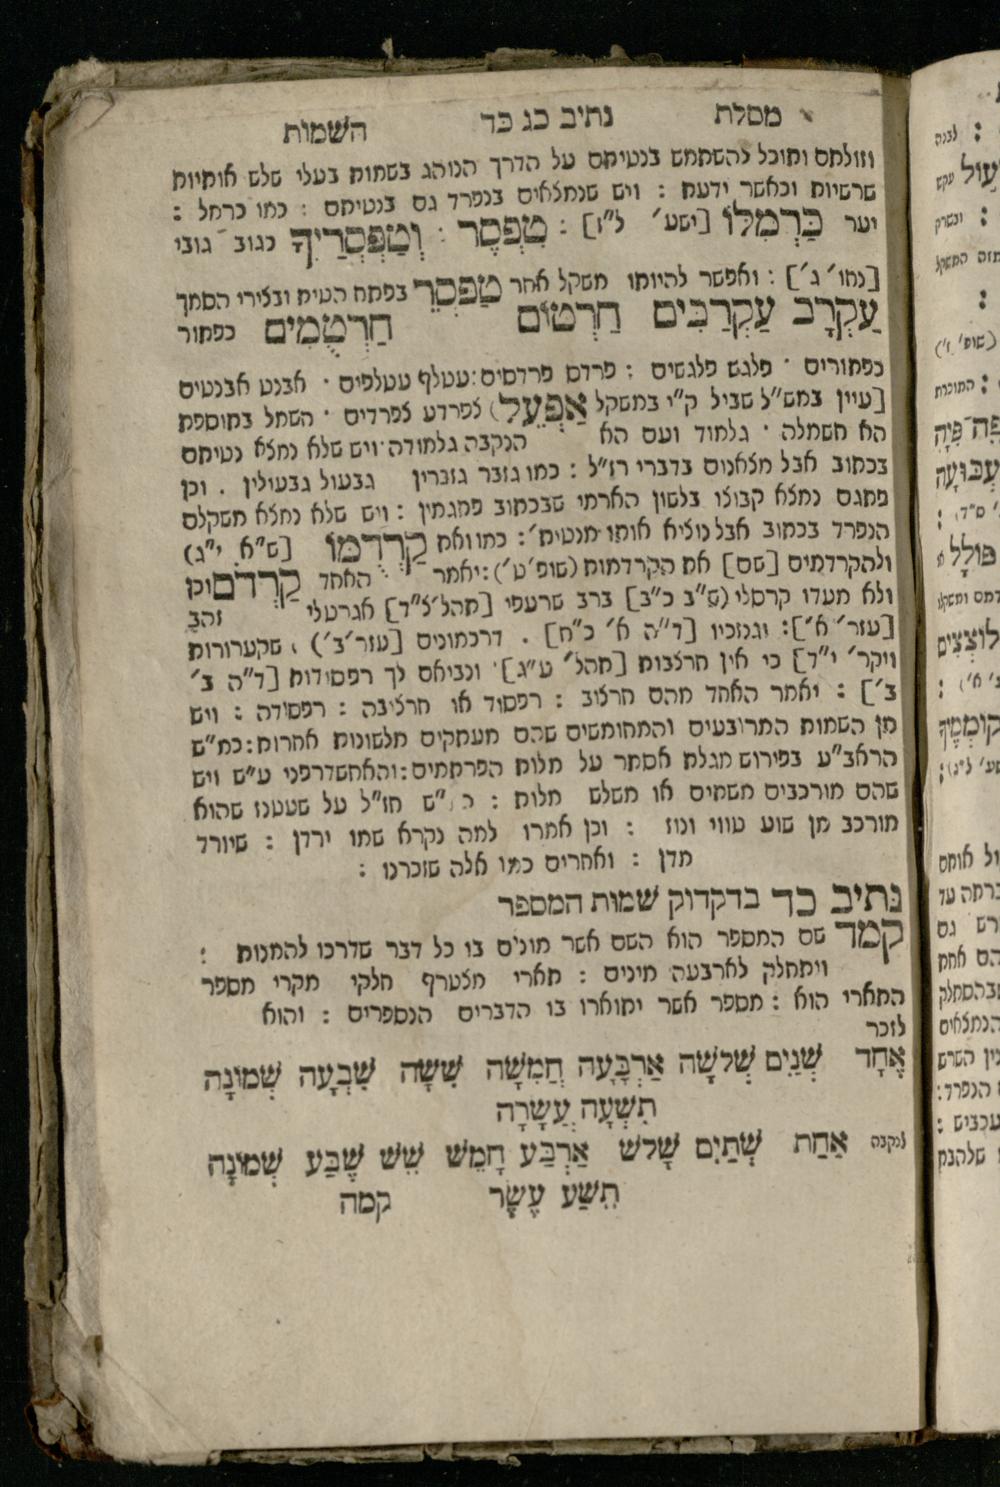 מסלת נתיב כג כד השמות
וזולתם ותוכל להשתמש בנטיתם על הדרך הנוהג בשמות בעלי שלש אותיות
שרשיות וכאשר ידעת : ויש שנמצאים בנפרד גם בנטיתם : כמו כרמל :
יער כַּרְמִלּוֹ [ישע׳ ל״ז] : טִפְסֶר : וְטַפְסְרַיִךְ כגוב גובי
[נחו׳ ג׳] : ואפשר להיותו משקל אחר טַפְסֵר בפתח הטית ובצירי הסמך
עַקְרָב עַקְרַבִּים חַרְטוֹם חַרְטֻמִּים כפתור
כפתורים · פלגש פלגשים : פרדס פרדסים : עטלף עטלפים · אבנט אבנטים
[עיין במש״ל שביל ק״י במשקל אַפְעֵל) צפרדע צפרדים · חשמל בתוספת
הא חשמלה · גלמוד ועם הא הנקבה גלמודה · ויש שלא נמצא נטיתם
בכתוב אבל מצאנום בדברי רז״ל : כמו גזבר גזברין גבעול גבעולין . וכן
פתגם נמצא קבוצו בלשון הארמי שבכתוב פתגמין : ויש שלא נמצא משקלם
הנפרד בכתוב אבל נוציא אותו מנטית׳ : כמו ואת קַרְדֻמּוֹ [ש״א י״ג)
ולהקרדמים [שם] את הקרדמות (שופ׳ ט׳) : יאמר האחד קַרְדֹּם וכן
ולא מעדו קרסלי (ש״ב כ״ב] ברב שרעפי [תהל׳ צ״ד] אגרטלי זהב
[עזר׳ א׳] : וגנזכיו [ד״ה א׳ כ״ח] . דרכמונים [עזר׳ ב׳) , שקערורות
ויקר׳ י״ד] כי אין חרצבות [תהל׳ ע״ג] ונביאם לך רפסודות [ד״ה ב׳
ב׳] : יאמר האחד מהם חרצוב : רפסוד או חרציבה : רפסודה : ויש
מן השמות המרובעים והמחומשים שהם מעתקים מלשונות אחרות : כמ״ש
הראב״ע בפירוש מגלת אסתר על מלות הפרתמים : והאחשדרפני ע״ש ויש
שהם מורכבים משתים או משלש מלות : כ״ש חז״ל על שעטנז שהוא
מורכב מן שוע טווי ונוז : וכן אמרו למה נקרא שמו ירדן : שיורד
מדן : ואחרים כמו אלה שזכרנו :
נתיב כד בדקדוק שמות המספר
קמד שם המספר הוא השם אשר מונים בו כל דבר שדרכו להמנות :
ויתחלק לארבעה מינים : תארי מצטרף חלקי מקרי מספר
התארי הוא : מספר אשר יתוארו בו הדברים הנספרים : והוא
לזכר
אֶחָד שְׁנַיִם שְׁלֹשָׁה אַרְבָּעָה חֲמִשָּׁה שִׁשָּׁה שִׁבְעָה שְׁמוֹנָה
תִּשְׁעָה עֲשָׂרָה
לנקבה אַחַת שְׁתַּיִם שָׁלֹשׁ אַרְבַּע חָמֵשׁ שֵׁשׁ שֶׁבַע שְׁמוֹנֶה
תֵּשַׁע עֶשֶׂר קמה